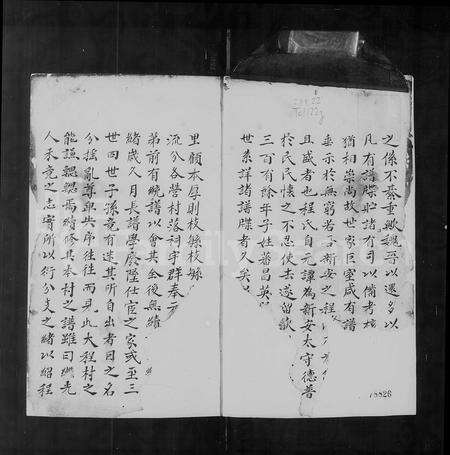 之係不綦重歟魏晉以還多以
凡有譜牒貯諸有司以備考核
猶相崇尚故世家巨室咸有譜
垂示於無窮若予新安之程
且盛者也程氏自元譚為新安太守德普
於民民懷之不忍使去遂留歙
三百有餘年子姓蕃昌英
世系詳諸譜牒者久矣
里顧本厚則枝緜枝緜
流分各營村落祠宇群奉
弟前有統譜以會其全後無續
緒歲久月長譜學廢墜仕宦之家或至三
世四世子孫竟有迷其所自出者因之名
分搖亂尊卑失序往往而見此大程村之
能譜續修其本村之譜雖曰繼先
人未竟之志實所以衍分支之緒以紹程
18826